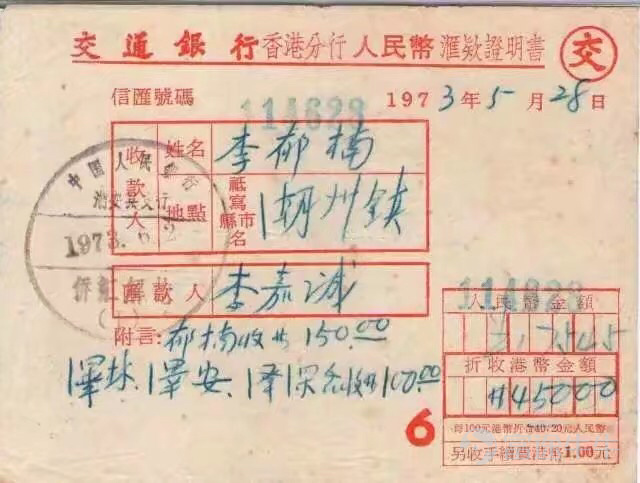 交通銀行香港分行人民幣滙欵證明書 交
信匯號碼 114623 1973年5月28日
收款人 姓名 李郁楠
地點 祗寫縣市名 潮州鎮
中国人民銀行
潮安县支行
1973.6.2
侨汇解放
滙款人 李嘉诚
附言:郁楠收廾150.00
澤林、澤安、澤深各收廾100.00
114623
人民幣金額
折收港幣金額
廾45000
6
每100元港幣折合40.20元人民幣
另收手續費港幣1.00元